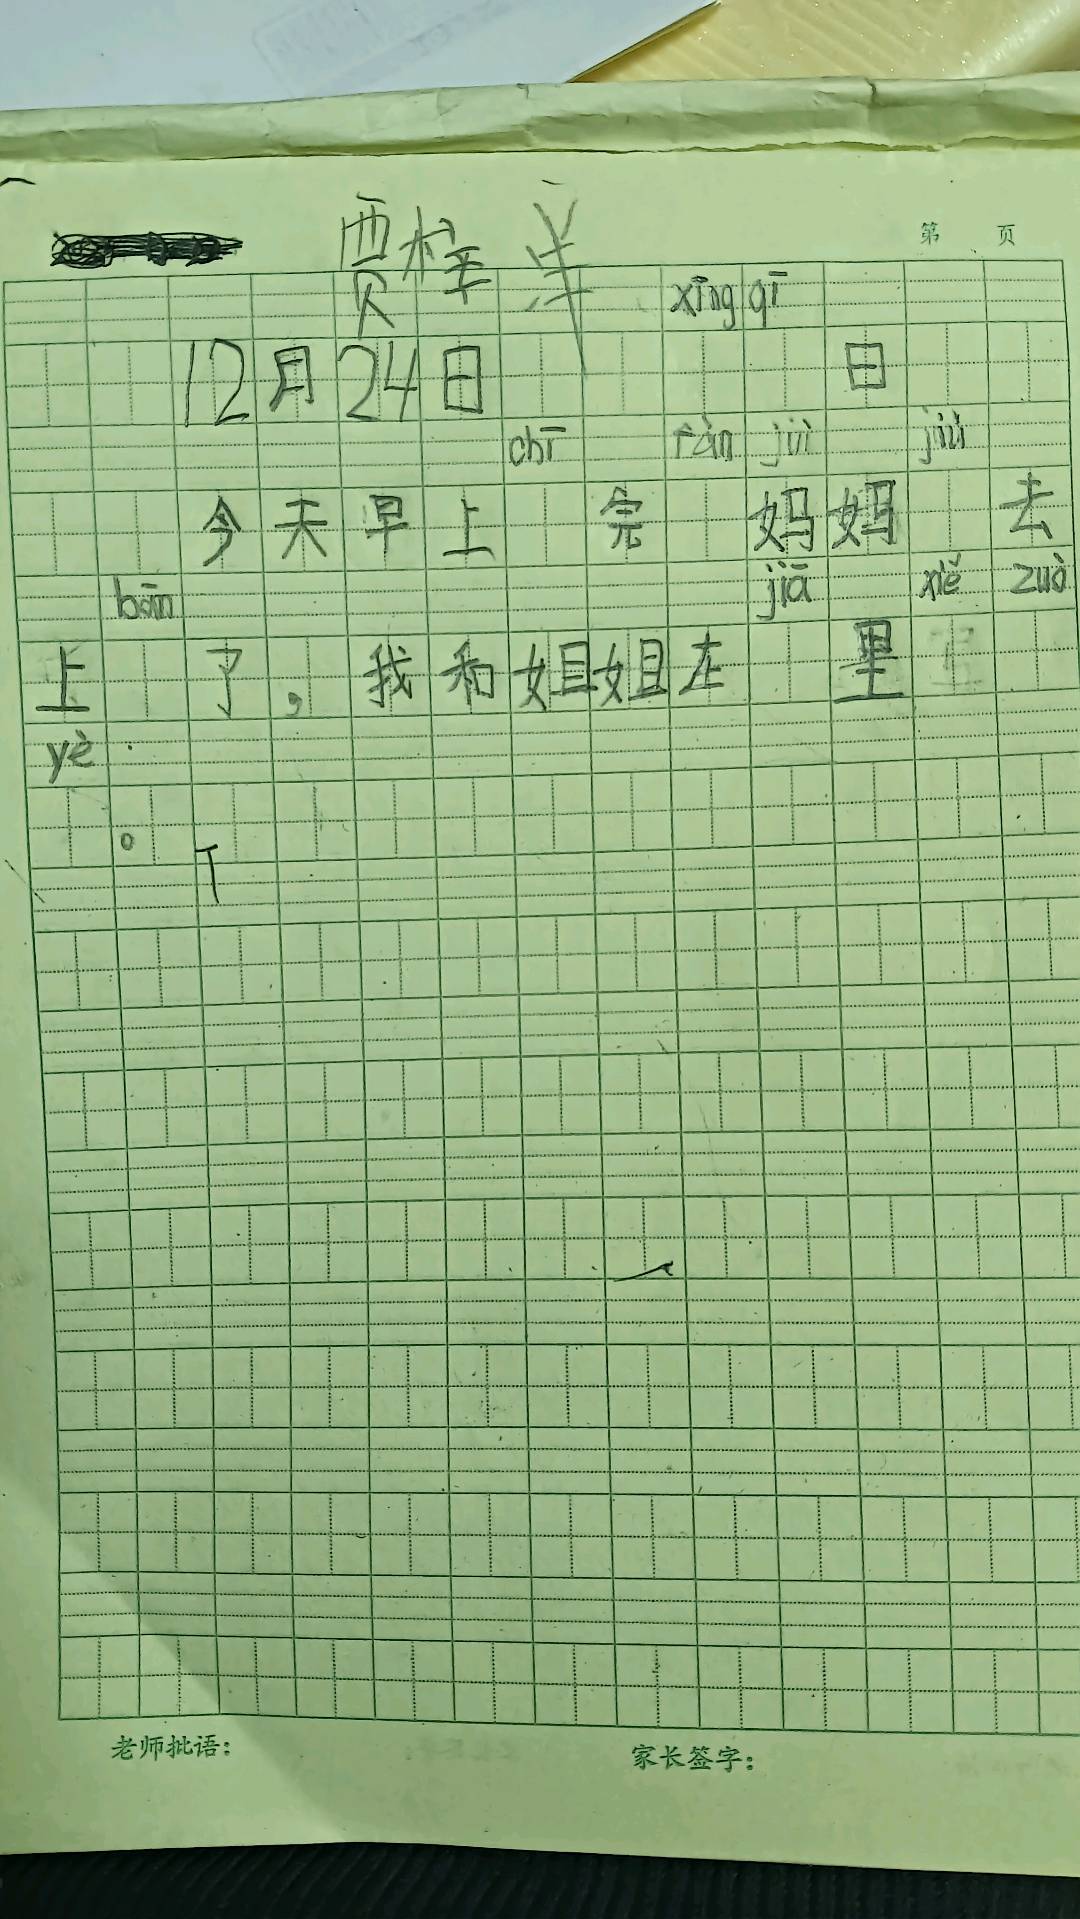 第 页
贾桂洋
xīng qī
12月24日 日
chī fàn jiù jiù
今天早上 完 妈妈 去
bān jiā xiě zuò
上 了,我和姐姐在 里
yè
。
老师批语: 家长签字: